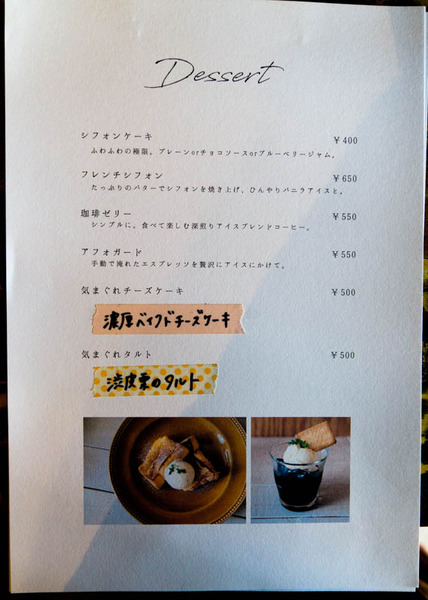 Dessert
シフォンケーキ ￥400
ふわふわの極限。プレーンorチョコソースorブルーベリージャム。
フレンチシフォン ￥650
たっぷりのバターでシフォンを焼き上げ、ひんやりバニラアイスと。
珈琲ゼリー ￥550
シンプルに。食べて楽しむ深煎りアイスブレンドコーヒー。
アフォガード ￥550
手動で淹れたエスプレッソを贅沢にアイスにかけて。
気まぐれチーズケーキ ￥500
濃厚ベイクドチーズケーキ
気まぐれタルト ￥500
渋皮栗のタルト